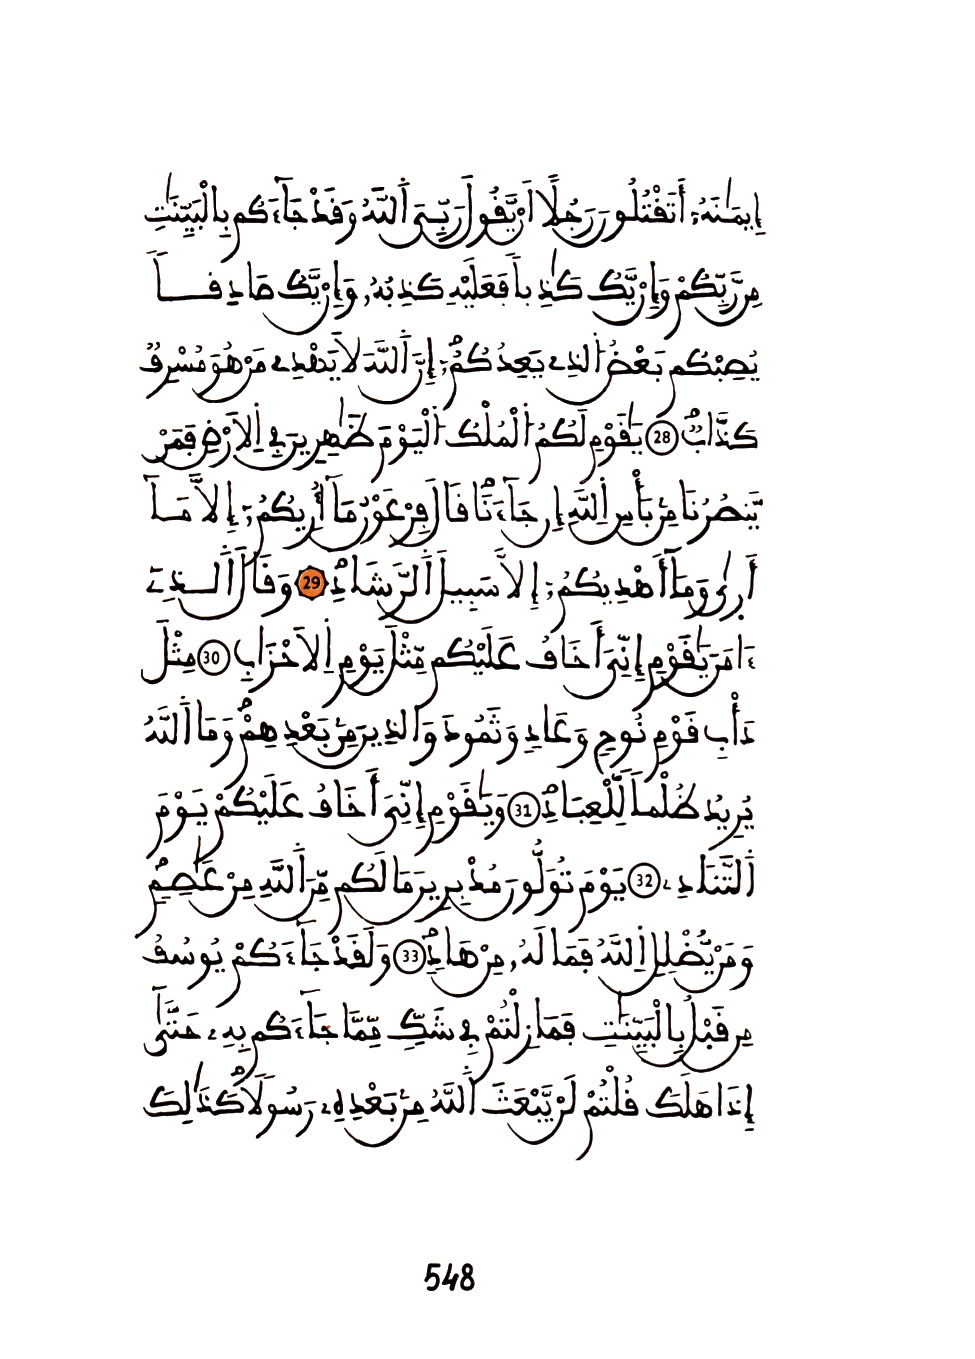 إِيمَٰنَهُۥٓ أَتَقْتُلُونَ رَجُلًا أَنْ يَّقُولَ رَبِّيَ اَ۬للَّهُ وَقَدْ جَآءَكُم بِالْبَيِّنَٰتِ
مِن رَّبِّكُمْ وَإِنْ يَّكُ كَٰذِباٗ فَعَلَيْهِ كَذِبُهُۥ وَإِنْ يَّكُ صَادِقاٗ
يُصِبْكُم بَعْضُ اُ۬لذِے يَعِدُكُمُۥٓ إِنَّ اَ۬للَّهَ لَا يَهْدِے مَنْ هُوَ مُسْرِفٞ
كَذَّابٞ 28 يَٰقَوْمِ لَكُمُ اُ۬لْمُلْكُ اُ۬لْيَوْمَ ظَٰهِرِينَ فِے اِ۬لَارْضِ فَمَنْ
يَّنصُرُنَا مِنۢ بَأْسِ اِ۬للَّهِ إِن جَآءَنَا قَالَ فِرْعَوْنُ مَآ أُرِيكُمُۥٓ إِلَّا مَآ
أَرَىٰ وَمَآ أَهْدِيكُمُۥٓ إِلَّا سَبِيلَ اَ۬لرَّشَادِ 29 وَقَالَ اَ۬لذِےٓ
ءَامَنَ يَٰقَوْمِ إِنِّيَ أَخَافُ عَلَيْكُم مِّثْلَ يَوْمِ اِ۬لَاحْزَابِ 30 مِثْلَ
دَأْبِ قَوْمِ نُوحٖ وَعَادٖ وَثَمُودَ وَالذِينَ مِنۢ بَعْدِهِمْ وَمَا اَ۬للَّهُ
يُرِيدُ ظُلْماٗ لِّلْعِبَادِ 31 وَيَٰقَوْمِ إِنِّيَ أَخَافُ عَلَيْكُمْ يَوْمَ
اَ۬لتَّنَادِۦ 32 يَوْمَ تُوَلُّونَ مُدْبِرِينَ مَا لَكُم مِّنَ اَ۬للَّهِ مِنْ عَاصِمٖ
وَمَنْ يُّضْلِلِ اِ۬للَّهُ فَمَا لَهُۥ مِنْ هَادٖ 33 وَلَقَدْ جَآءَكُمْ يُوسُفُ
مِن قَبْلُ بِالْبَيِّنَٰتِ فَمَا زِلْتُمْ فِے شَكّٖ مِّمَّا جَآءَكُم بِهِۦ حَتَّىٰٓ
إِذَا هَلَكَ قُلْتُمْ لَنْ يَّبْعَثَ اَ۬للَّهُ مِنۢ بَعْدِهِۦ رَسُولاٗ كَذَٰلِكَ
548